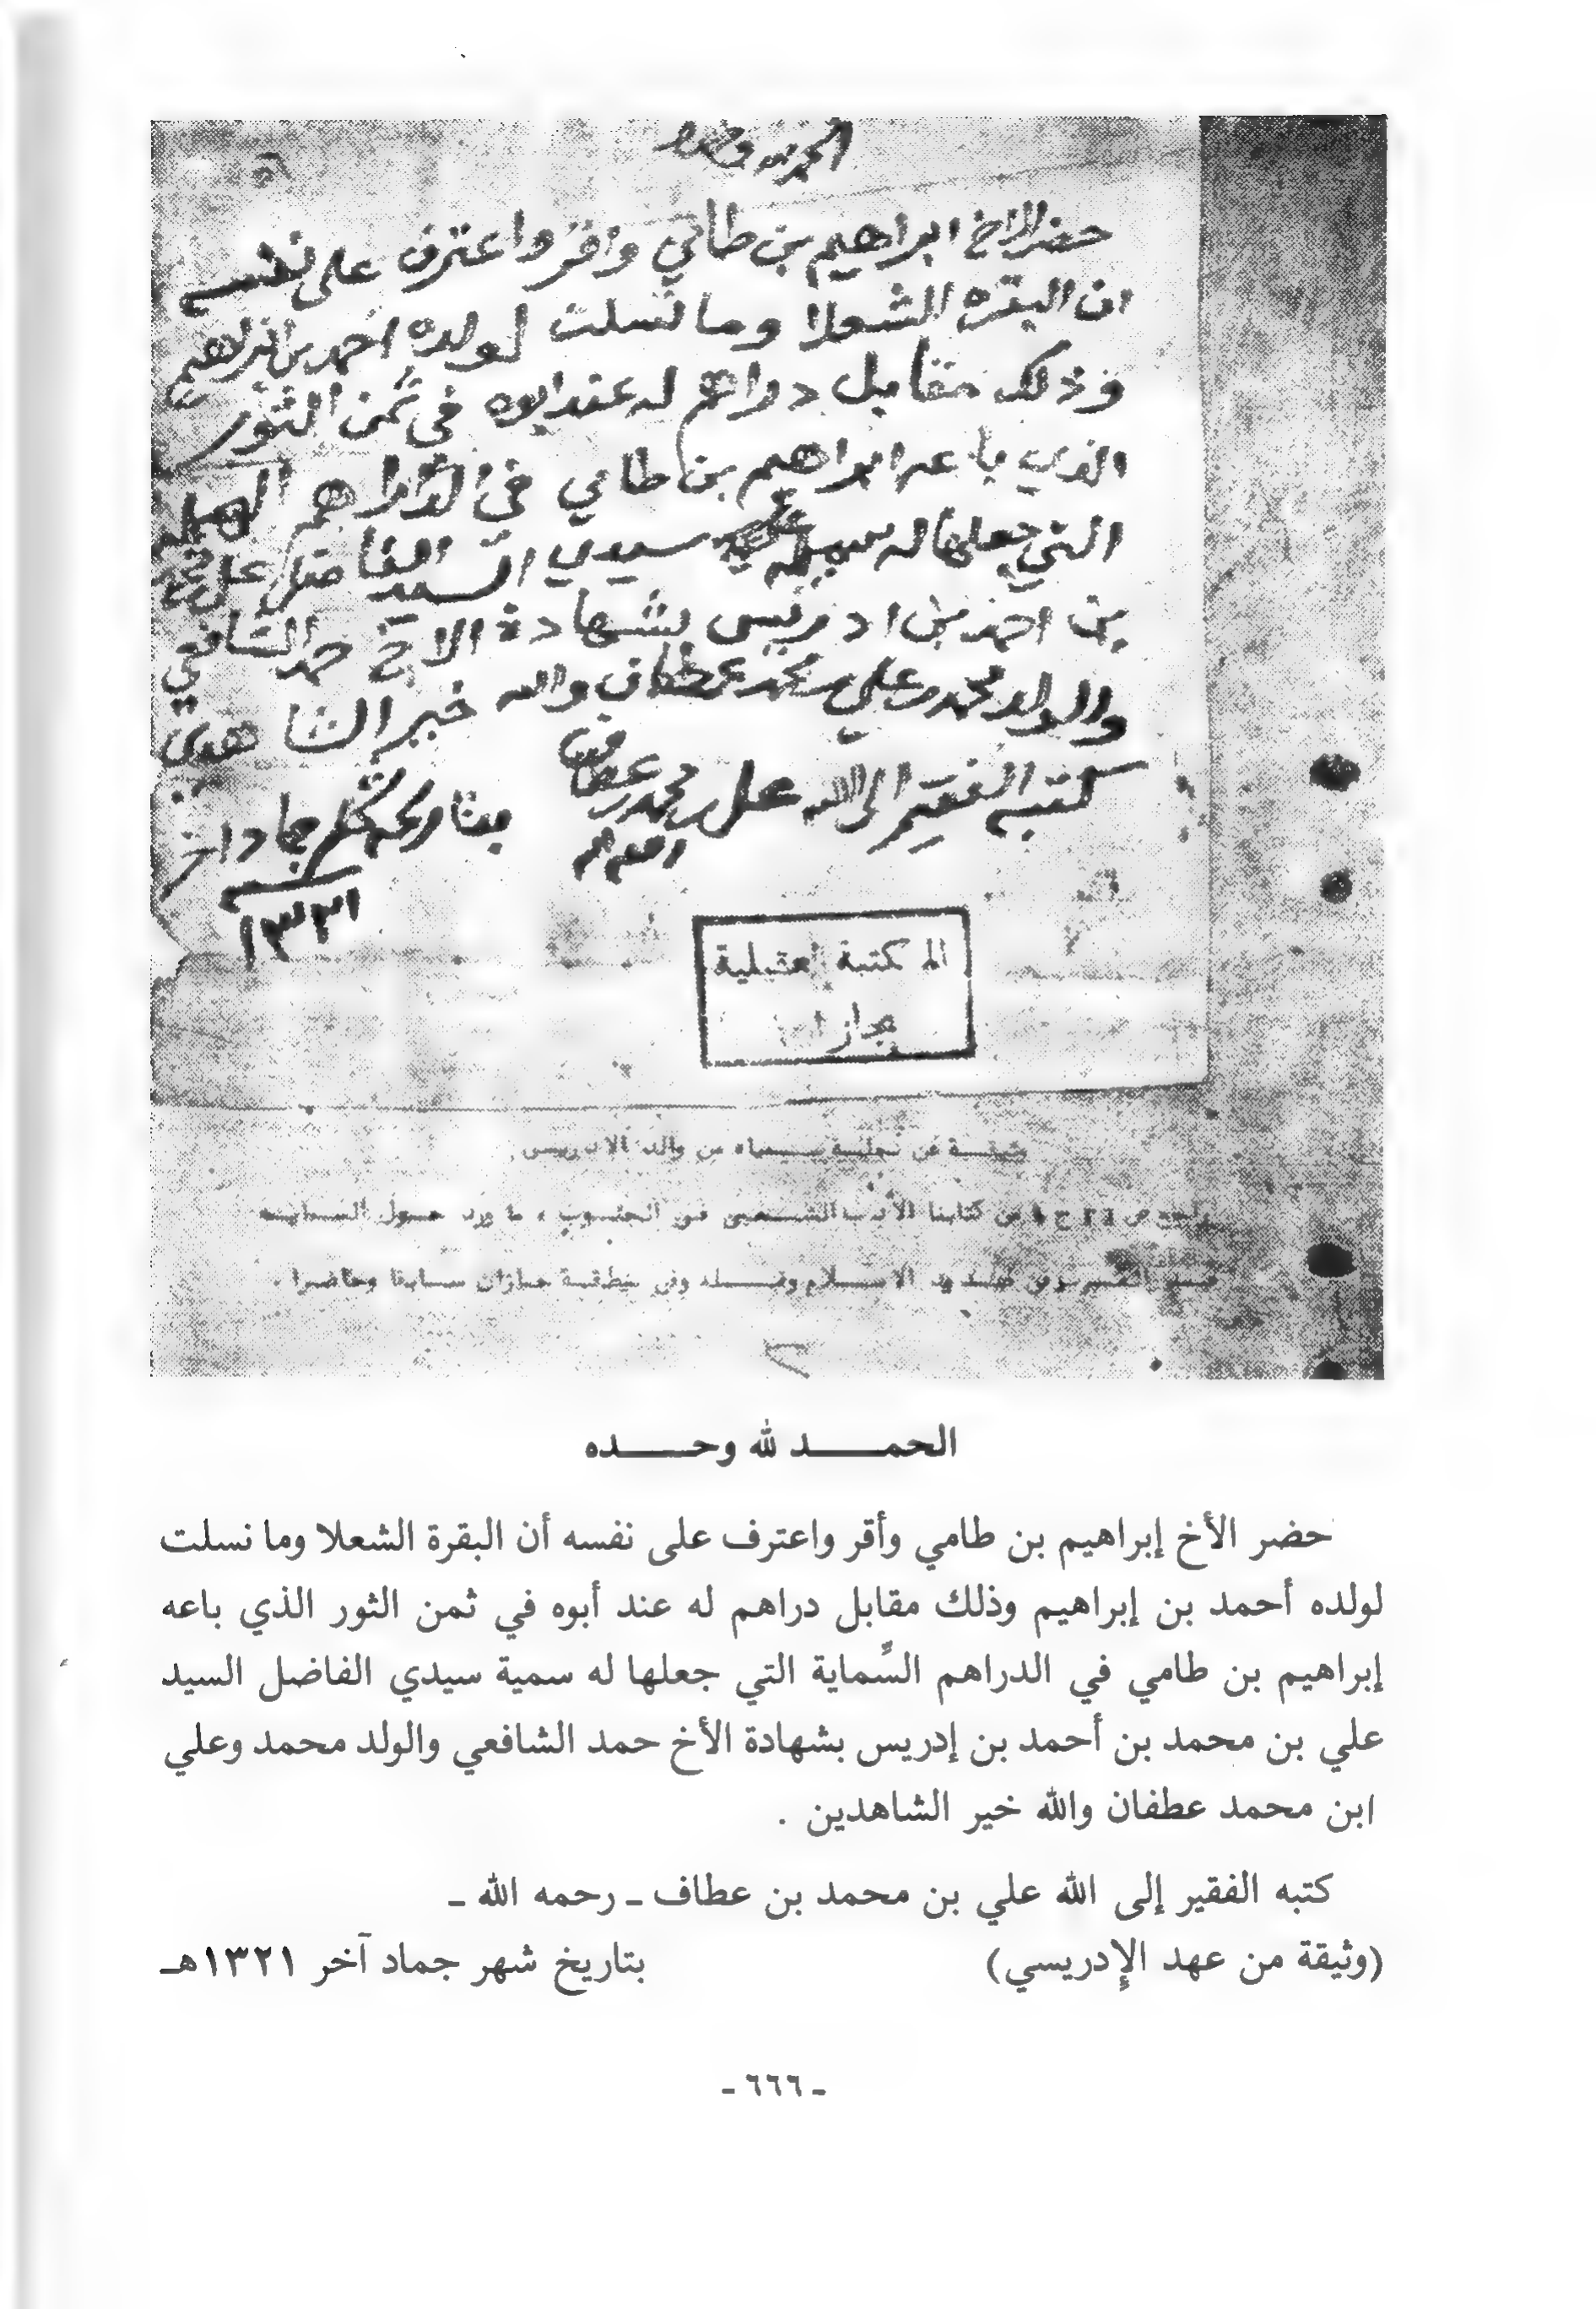 الحمد لله وحده
حضر الاخ ابراهيم بن طامي واقر واعترف على نفسه
ان البقره الشعلا وما نسلت لولده احمد بن ابراهيم
وذلك مقابل دراهم له عند ابوه في ثمن الثور
الذي باعه ابراهيم بن طامي في الدراهم
التي جعلها له سيدي السيد الفاضل علي بن محمد
بن احمد بن ادريس بشهادة الاخ حمد الشافعي
والولد محمد وعلي بن محمد عطفان والله خير الشاهدين
كتبه الفقير الى الله علي بن محمد بن عطاف
رحمه الله
بتاريخ شهر جماد اخر
سنه
١٣٢١
المكتبة العقيلية
بجازان
وثيقة عن تجلية سماية من والد الادريسي
راجع ص ج من كتابنا الأدب الشعبي في الجنوب ، ما ورد حول السماية
الاسلام وفي منطقة جازان سابقا وحاضرا .
الحمد لله وحده
حضر الأخ إبراهيم بن طامي وأقر واعترف على نفسه أن البقرة الشعلا وما نسلت
لولده أحمد بن إبراهيم وذلك مقابل دراهم له عند أبوه في ثمن الثور الذي باعه
إبراهيم بن طامي في الدراهم السِّماية التي جعلها له سمية سيدي الفاضل السيد
علي بن محمد بن أحمد بن إدريس بشهادة الأخ حمد الشافعي والولد محمد وعلي
ابن محمد عطفان والله خير الشاهدين .
كتبه الفقير إلى الله علي بن محمد بن عطاف ـ رحمه الله ـ
(وثيقة من عهد الإدريسي) بتاريخ شهر جماد آخر ١٣٢١هـ
ـ ٦٦٦ ـ